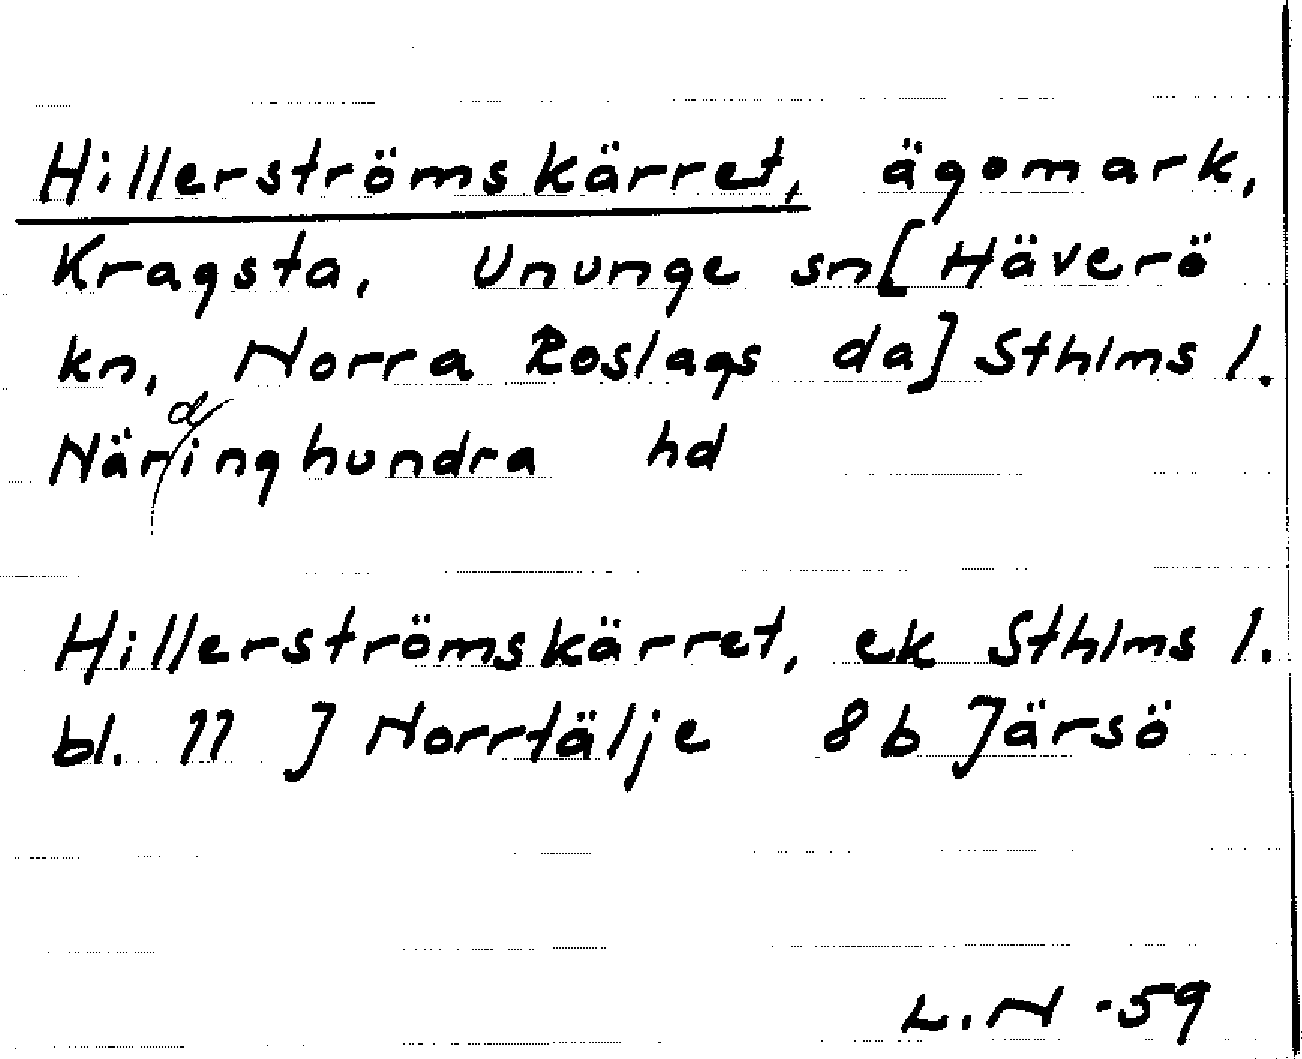 Hillerströmskärret, ägomark,
Kragsta, Ununge sn [Häverö
kn, Norra Roslags da] Sthlms l.
Närdinghundra hd
Hillerströmskärret, ek Sthlms l.
bl. 11 J Norrtälje 8b Järsö
L.N -59